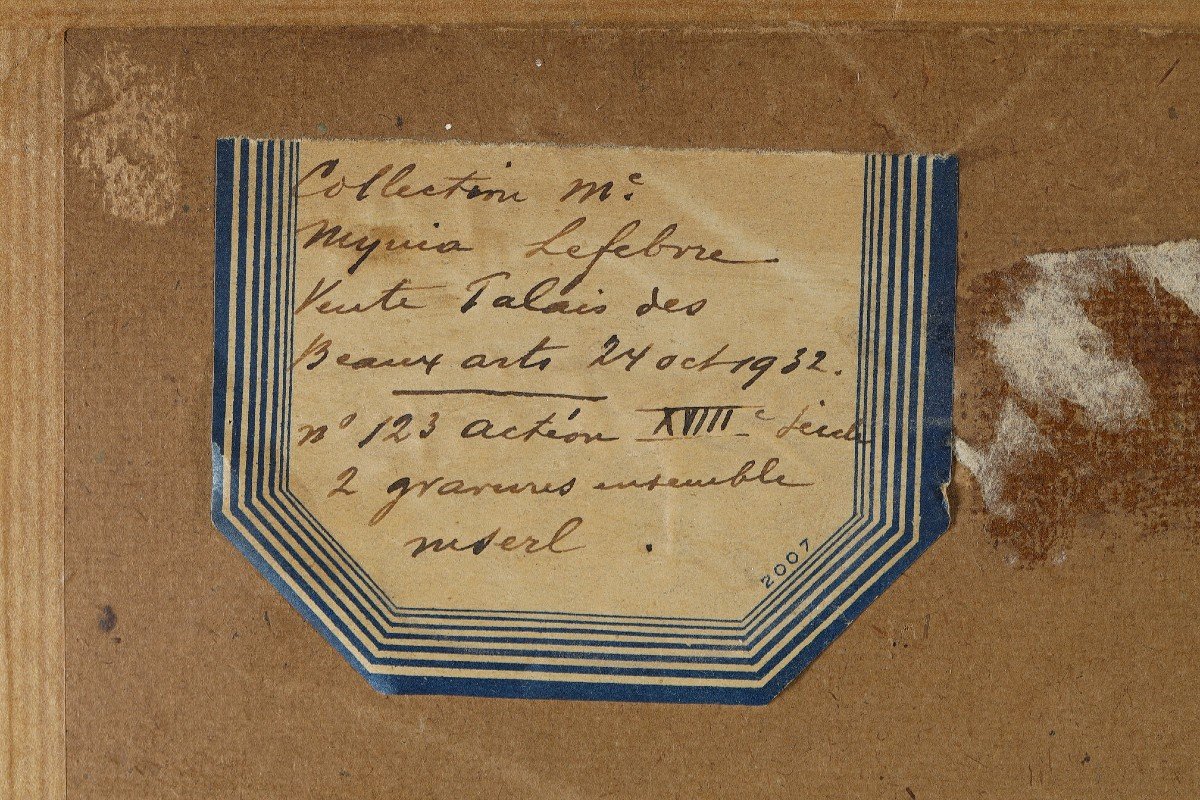 Collection Me.
Lefebvre
Vente Palais des
Beaux arts 24 oct 1932.
n° 123 actéon XVIIIe siècle
2 gravures ensemble
2007